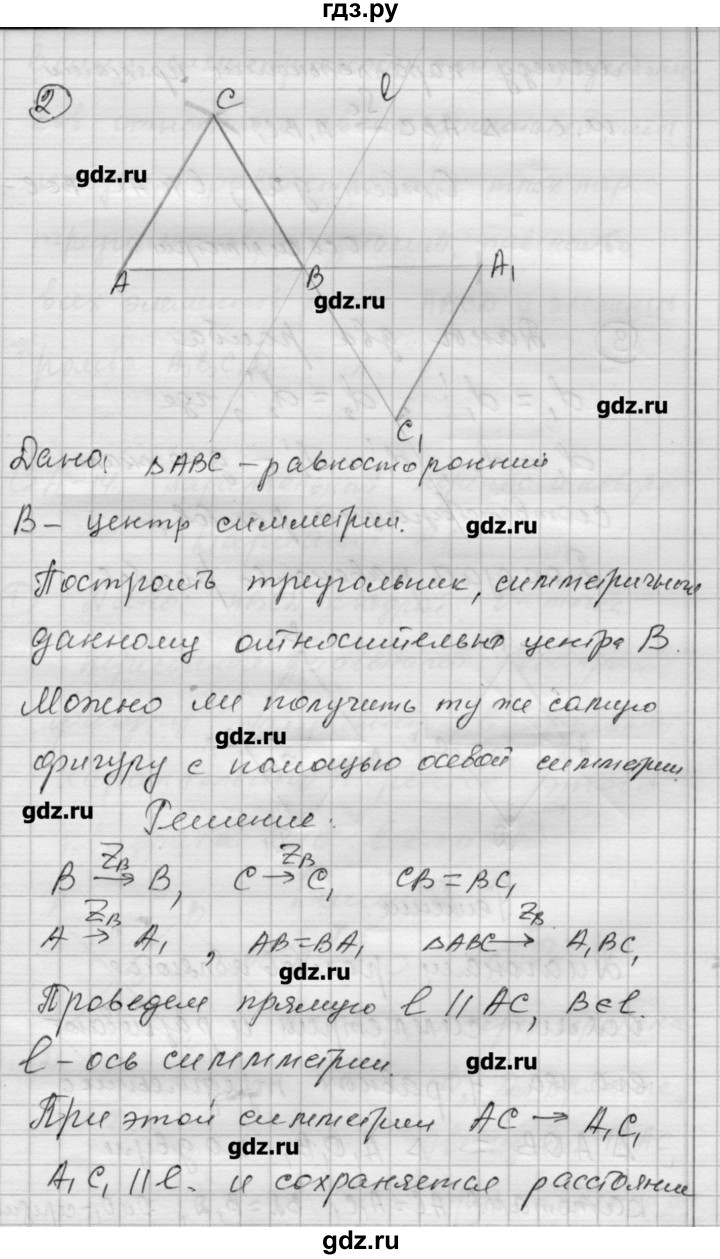 гдз.ру
2
C
l
gdz.ru
A
B
A₁
gdz.ru
gdz.ru
C₁
Дано: ΔABC – равносторонний
B – центр симметрии.
gdz.ru
Построить треугольник, симметричный
данному относительно центра B.
Можно ли получить ту же самую
gdz.ru
фигуру с помощью осевой симметрии.
gdz.ru
Решение:
B →(Z_B) B, C →(Z_B) C₁ CB = BC₁
A →(Z_B) A₁, AB = BA₁ ΔABC →(Z_B) A₁BC₁
gdz.ru
Проведем прямую l || AC, B∈l.
l – ось симметрии.
gdz.ru
При этой симметрии AC → A₁C₁
gdz.ru
A₁C₁ || l. и сохраняется расстояние
gdz.ru